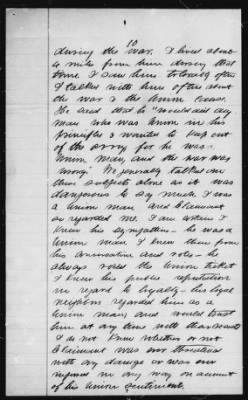 10
during the war. I lived about
a mile from him during that
time. I saw him tolerably often
I talked with him often about
the war & the Union Cause.
He said that he "would aid any
man who was Union in his
principles & wanted to keep out
of the army for he was
Union man, and the war was
wrong" We generally talked on
these subjects alone as it was
dangerous to say much. I was
a Union man and Claimant
so regarded me. I am certain I
knew his sympathies - he was a
Union man I knew them from
his conversation and votes - he
always voted the Union ticket
I knew his public reputation
in regard to loyalty - his loyal
neighbors regarded him as a
Union man, and would trust
him at any time with
I do not know whether or not
Claimant was ever threatened
with any damage or was ever
injured in any way on account
of his Union sentiments.